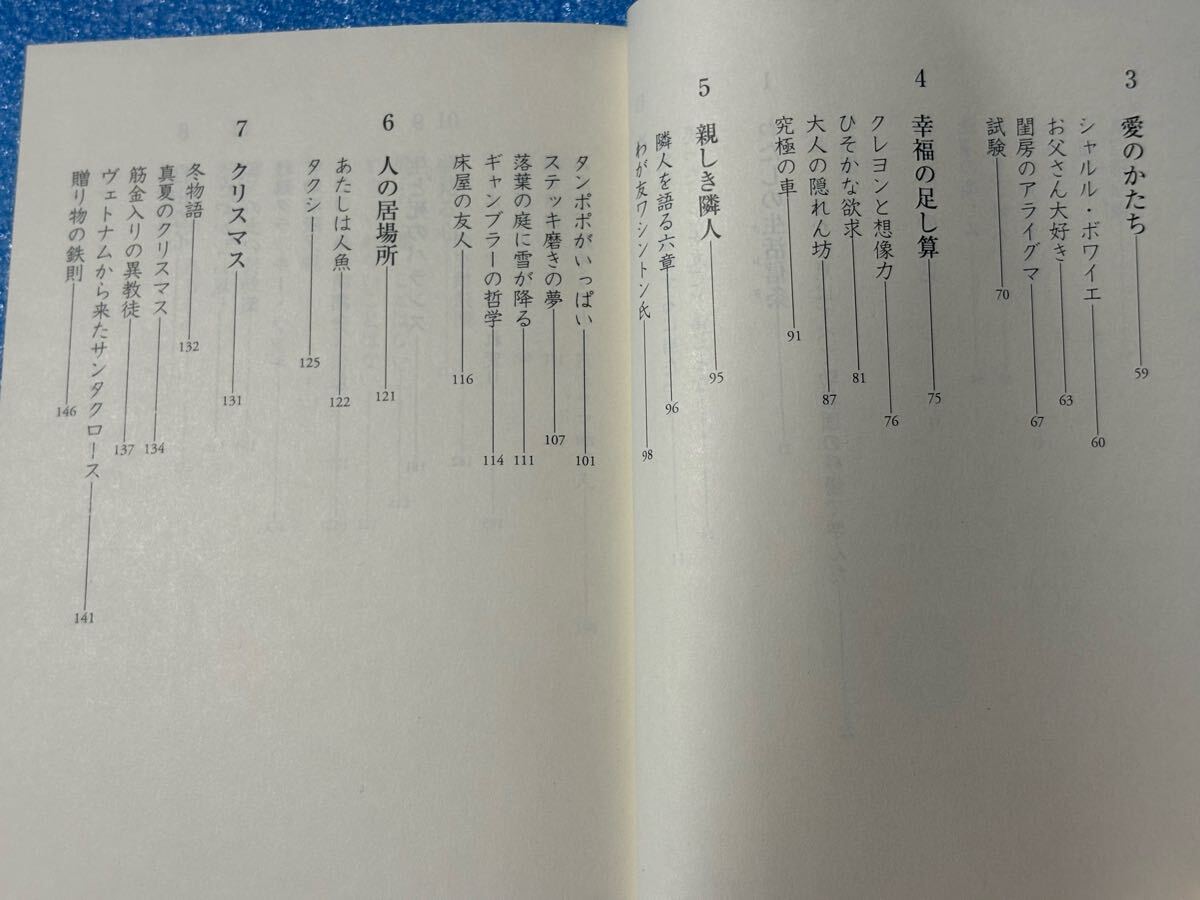 3 愛のかたち 59
シャルル・ボワイエ 60
お父さん大好き 63
閨房のアライグマ 67
試験 70
4 幸福の足し算 75
クレヨンと想像力 76
ひそかな欲求 81
大人の隠れん坊 87
究極の車 91
5 親しき隣人 95
隣人を語る六章 96
わが友ワシントン氏 98
タンポポがいっぱい 101
ステッキ磨きの夢 107
落葉の庭に雪が降る 111
ギャンブラーの哲学 114
床屋の友人 116
6 人の居場所 121
あたしは人魚 122
タクシー 125
7 クリスマス 131
冬物語 132
真夏のクリスマス 134
筋金入りの異教徒 137
ヴェトナムから来たサンタクロース 141
贈り物の鉄則 146